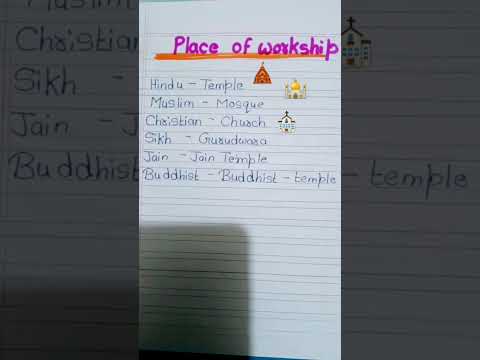 Place of workship
Hindu - Temple
Muslim - Mosque
Christian - Church
Sikh - Gurudwara
Jain - Jain Temple
Buddhist - Buddhist - temple